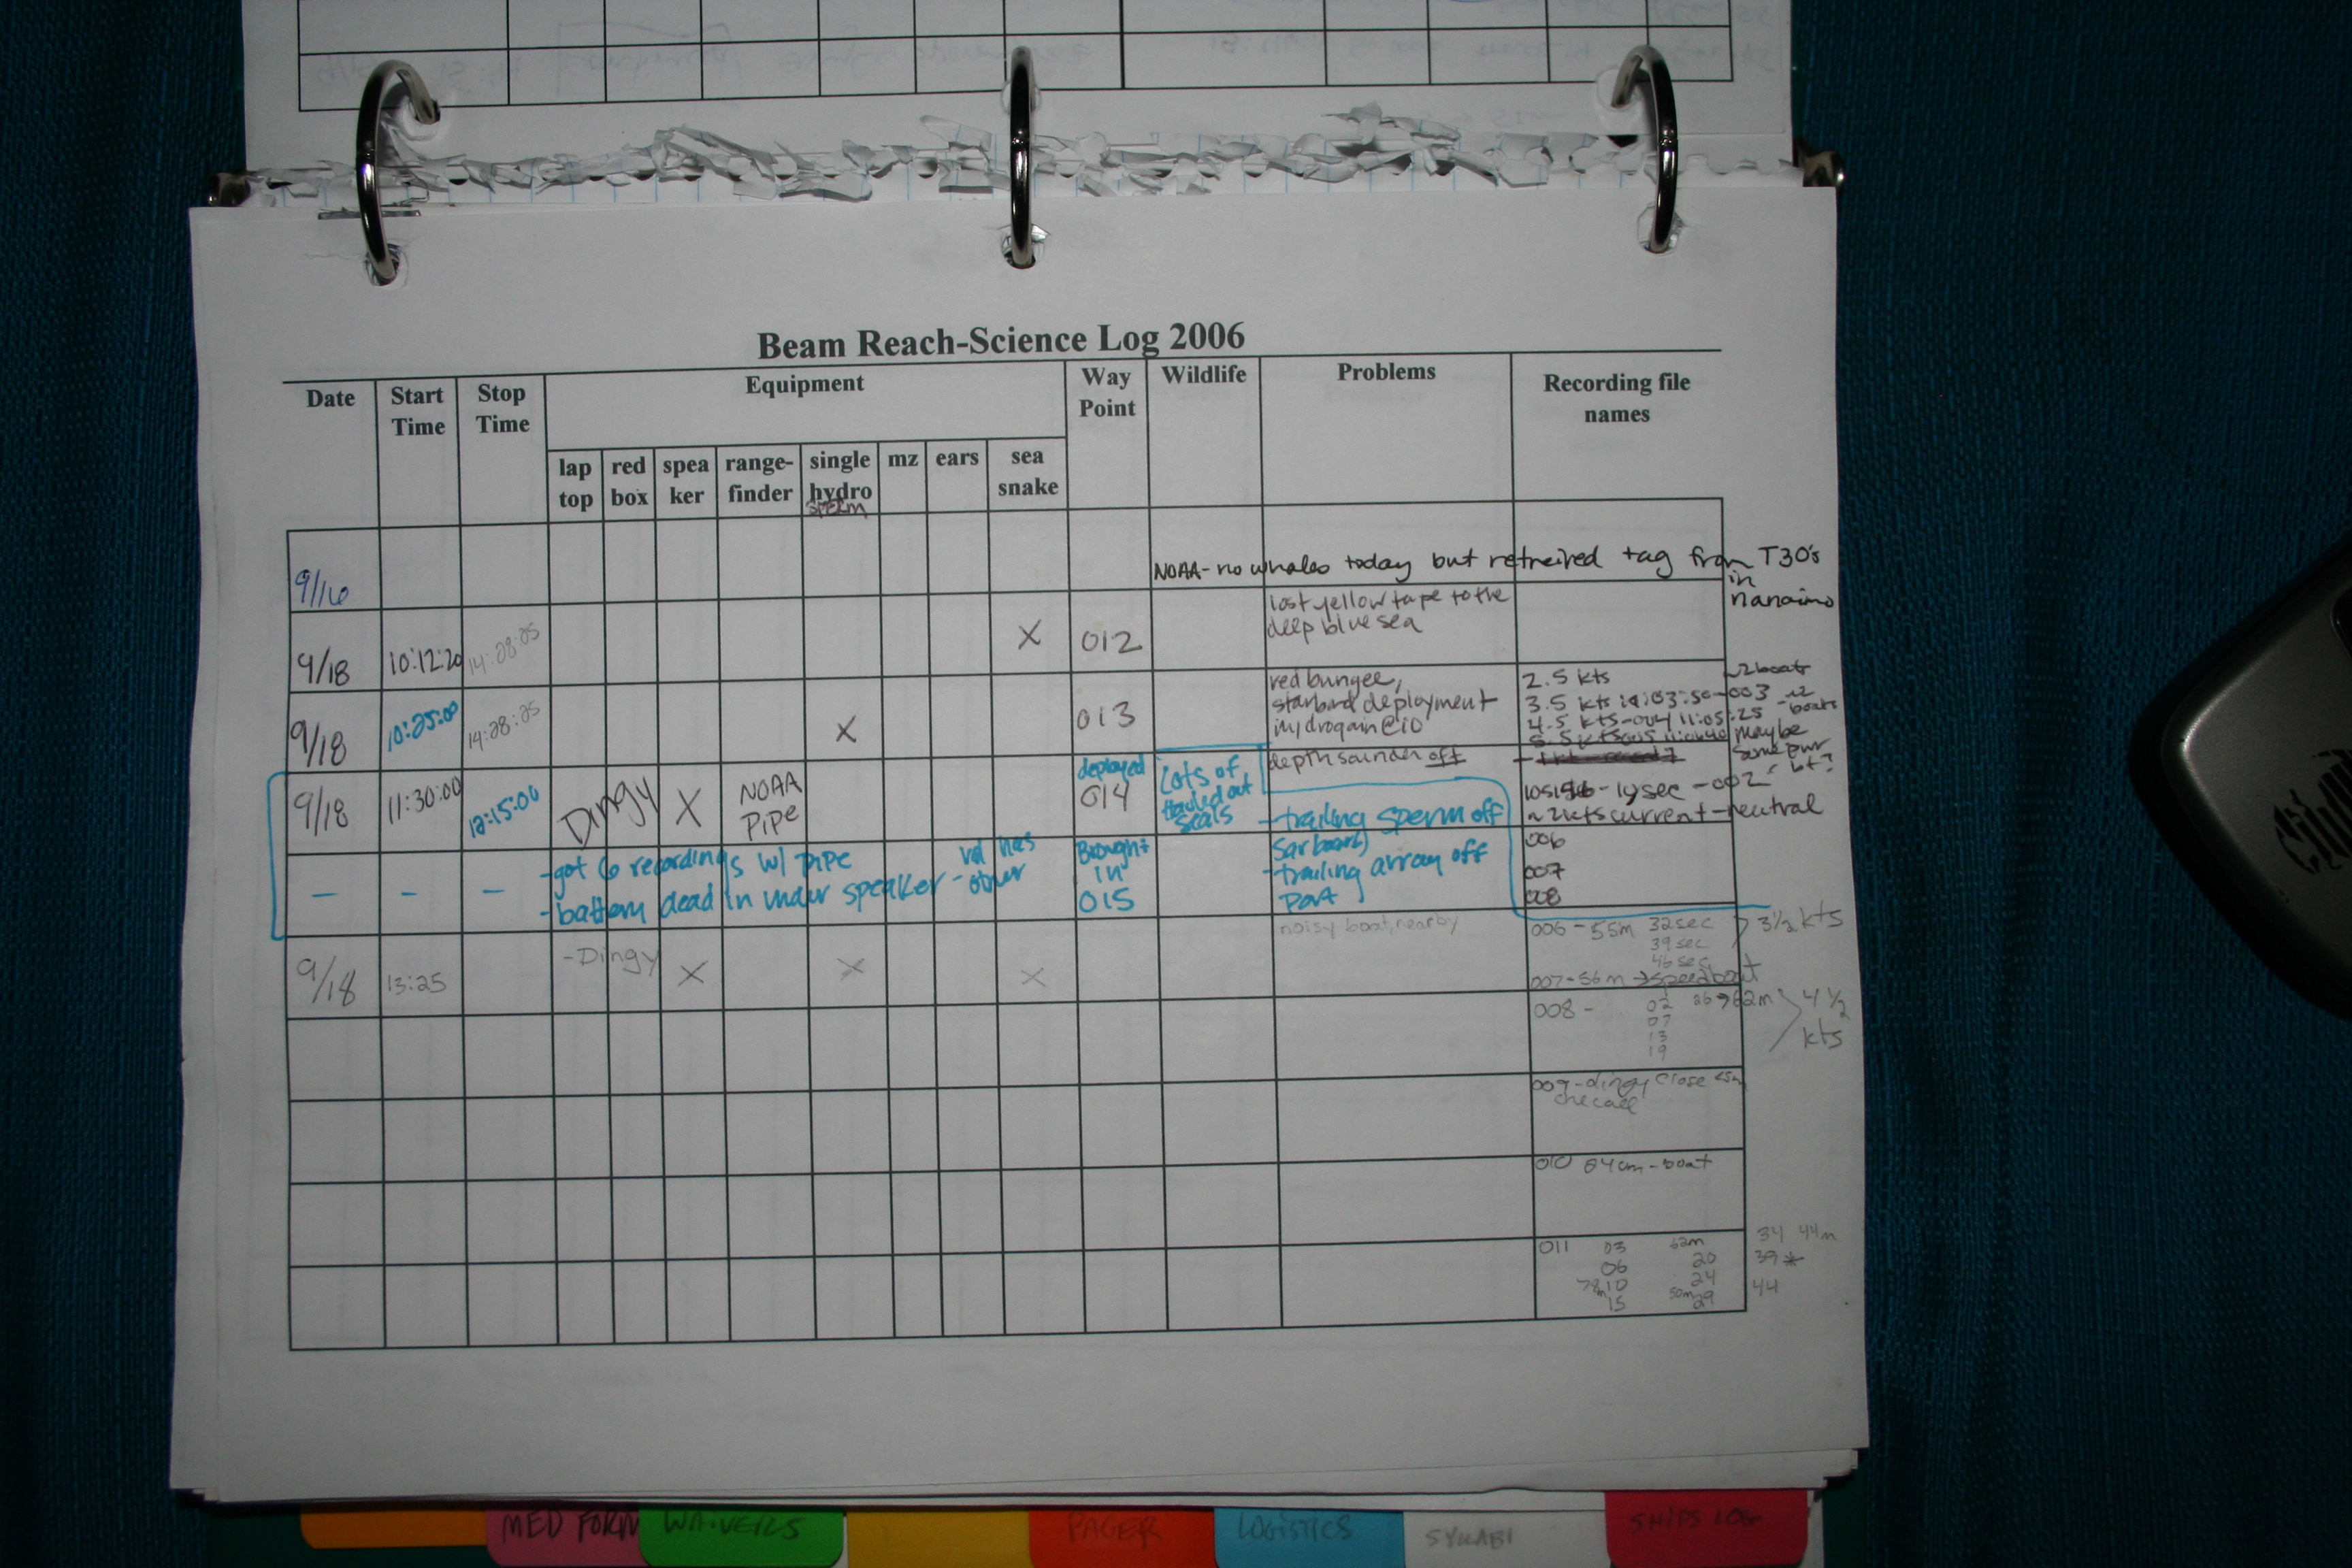 Beam Reach-Science Log 2006
Date Start Time Stop Time Equipment Way Point Wildlife Problems Recording file names
lap top red box spea ker range-finder single hydro mz ears sea snake
SPERM
9/16 NOAA - no whales today but retreived tag from T30's
in
nanaimo
9/18 10:12:20 14:28:25 X 012 lost yellow tape to the
deep blue sea
9/18 10:25:00 14:28:25 X 013 red bungee,
starbrd deployment
hydrogain@10
2.5 kts ~2 boats
3.5 kts 003
4.5 kts-004 11:05:25 maybe
some pwr
bt?
9/18 11:30:00 12:15:00 Dingy X NOAA
Pipe
deployed
014
Lots of
hauled out
seals
depth sounder off
-trailing sperm off
Sarboard
-trailing array off
Port
-002
~2kts current-neutral
- - - -got 6 recordings w/ pipe
-battery dead in under speaker - val has
other
Brought
in
015
006
007
008
9/18 13:25 -Dingy X X X noisy boat, nearby
006 - 55m 32sec 3 1/2 kts
39sec
46sec
007-56m → speedboat
008 - 02 26→62m 4 1/2
kts
07
13
19
009-dingy close
one call
010 boat
011 03 62m 34 44m
06 20 39*
10 24 44
15 50m 29
MED FORM WAIVERS PAGER LOGISTICS SYLLABI SHIPS LOG